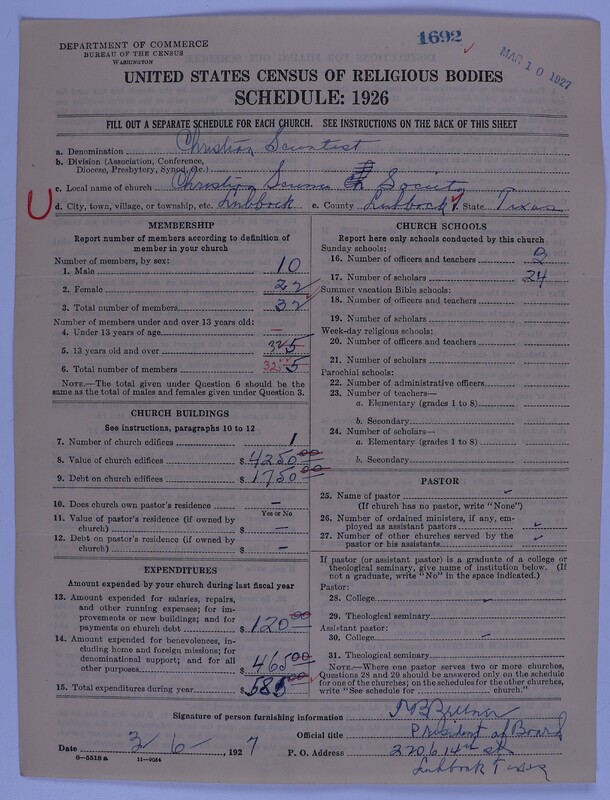 1692
MAR 10 1927
DEPARTMENT OF COMMERCE
BUREAU OF THE CENSUS
WASHINGTON
UNITED STATES CENSUS OF RELIGIOUS BODIES
SCHEDULE: 1926
FILL OUT A SEPARATE SCHEDULE FOR EACH CHURCH. SEE INSTRUCTIONS ON THE BACK OF THIS SHEET
a. Denomination Christian Scientist
b. Division (Association, Conference,
Diocese, Presbytery, Synod, etc.)
c. Local name of church Christian Science Society
d. City, town, village, or township, etc. Lubbock e. County Lubbock f. State Texas
MEMBERSHIP
Report number of members according to definition of
member in your church
Number of members, by sex:
1. Male 10
2. Female 22
3. Total number of members 32
Number of members under and over 13 years old:
4. Under 13 years of age —
5. 13 years old and over 32
6. Total number of members 32
NOTE.—The total given under Question 6 should be the
same as the total of males and females given under Question 3.
CHURCH BUILDINGS
See instructions, paragraphs 10 to 12
7. Number of church edifices 1
8. Value of church edifices $ 4250 00
9. Debt on church edifices $ 1750 00
10. Does church own pastor's residence —
Yes or No
11. Value of pastor's residence (if owned by
church) $ —
12. Debt on pastor's residence (if owned by
church) $ —
EXPENDITURES
Amount expended by your church during last fiscal year
13. Amount expended for salaries, repairs,
and other running expenses; for im-
provements or new buildings; and for
payments on church debt $ 120 00
14. Amount expended for benevolences, in-
cluding home and foreign missions; for
denominational support; and for all
other purposes $ 465 00
15. Total expenditures during year $ 585 00
CHURCH SCHOOLS
Report here only schools conducted by this church
Sunday schools:
16. Number of officers and teachers
17. Number of scholars 24
Summer vacation Bible schools:
18. Number of officers and teachers
19. Number of scholars
Week-day religious schools:
20. Number of officers and teachers
21. Number of scholars
Parochial schools:
22. Number of administrative officers
23. Number of teachers—
a. Elementary (grades 1 to 8)
b. Secondary
24. Number of scholars—
a. Elementary (grades 1 to 8)
b. Secondary
PASTOR
25. Name of pastor
(If church has no pastor, write "None")
26. Number of ordained ministers, if any, em-
ployed as assistant pastors
27. Number of other churches served by the
pastor or his assistants
If pastor (or assistant pastor) is a graduate of a college or
theological seminary, give name of institution below. (If
not a graduate, write "No" in the space indicated.)
Pastor:
28. College
29. Theological seminary
Assistant pastor:
30. College
31. Theological seminary
NOTE.—Where one pastor serves two or more churches,
Questions 28 and 29 should be answered only on the schedule
for one of the churches; on the schedules for the other churches,
write "See schedule for church."
Signature of person furnishing information
Official title President of Board
Date 3/6 — , 1927 P. O. Address 2206 14th st
Lubbock Texas
6—5518 a 11—9034